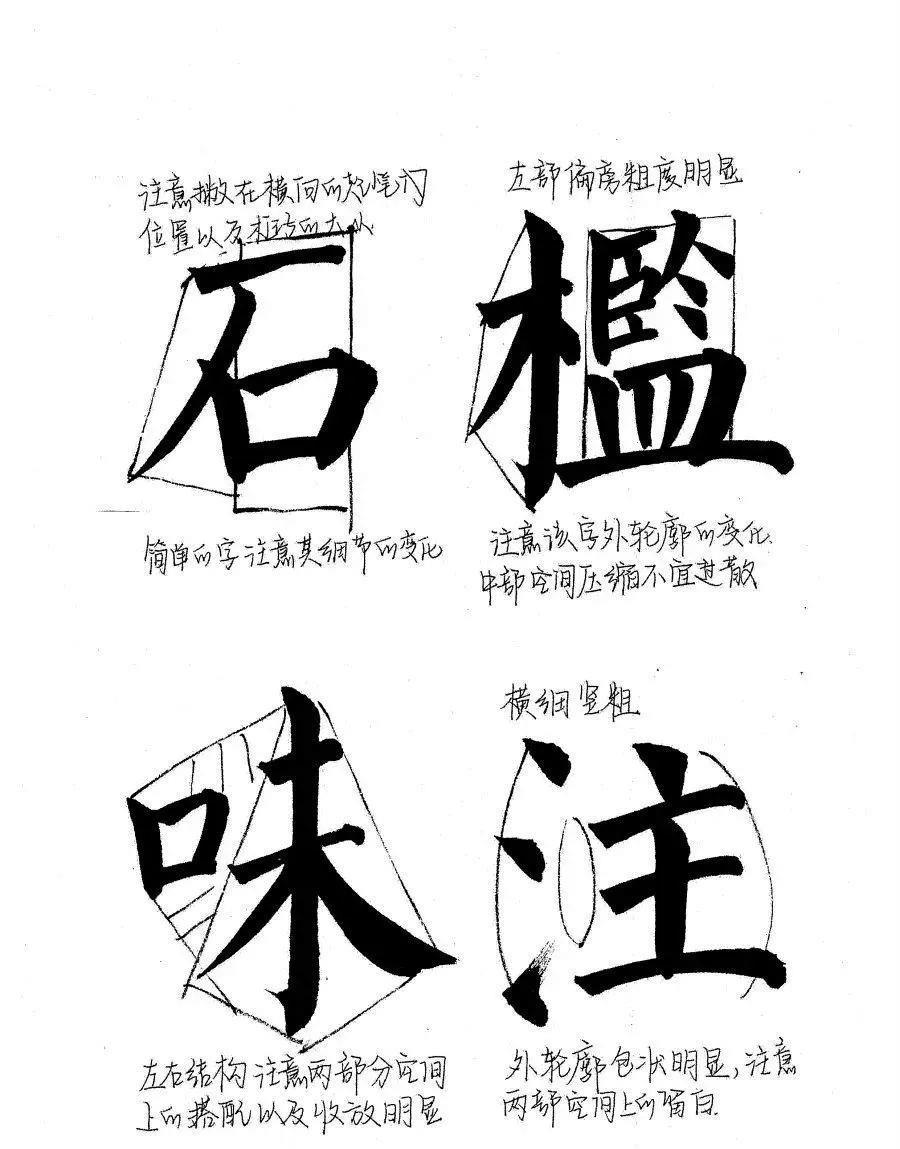 注意撇在横向的起笔的
位置以及框的大小
石
简单的字注意其细节的变化
左部偏旁粗度明显
檻
注意该字外轮廓的变化.
中部空间压缩不宜过散
味
左右结构注意两部分空间
上的搭配以及收放明显
横细竖粗
注
外轮廓包状明显,注意
两部空间上的留白.